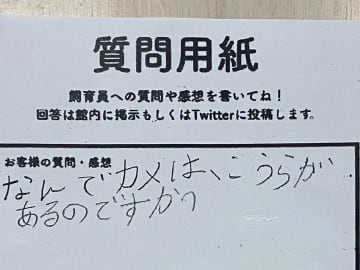 質問用紙
飼育員への質問や感想を書いてね！
回答は館内に掲示もしくはTwitterに投稿します。
お客様の質問・感想
なんでカメは、こうらが
あるのですか？